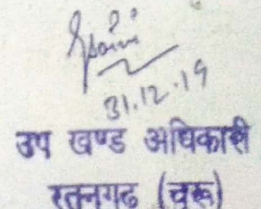 31.12.19
उप खण्ड अधिकारी
रतनगढ (चूरू)